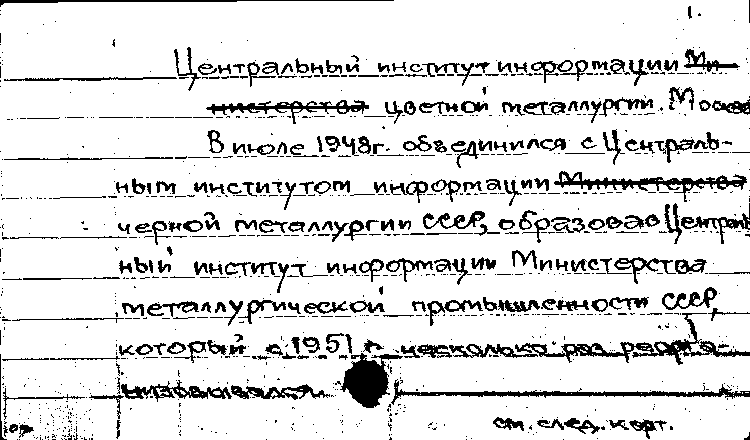 1.
Центральный институт информации Ми-
нистерства цветной металлургии. Москва
В июле 1948г. объединился с Централь-
ным институтом информации Министерства
черной металлургии СССР, образовав Централь
ный институт информации Министерства
металлургической промышленности СССР,
который с 1951 г. несколько раз реорга-
низовывался.
см. след. карт.